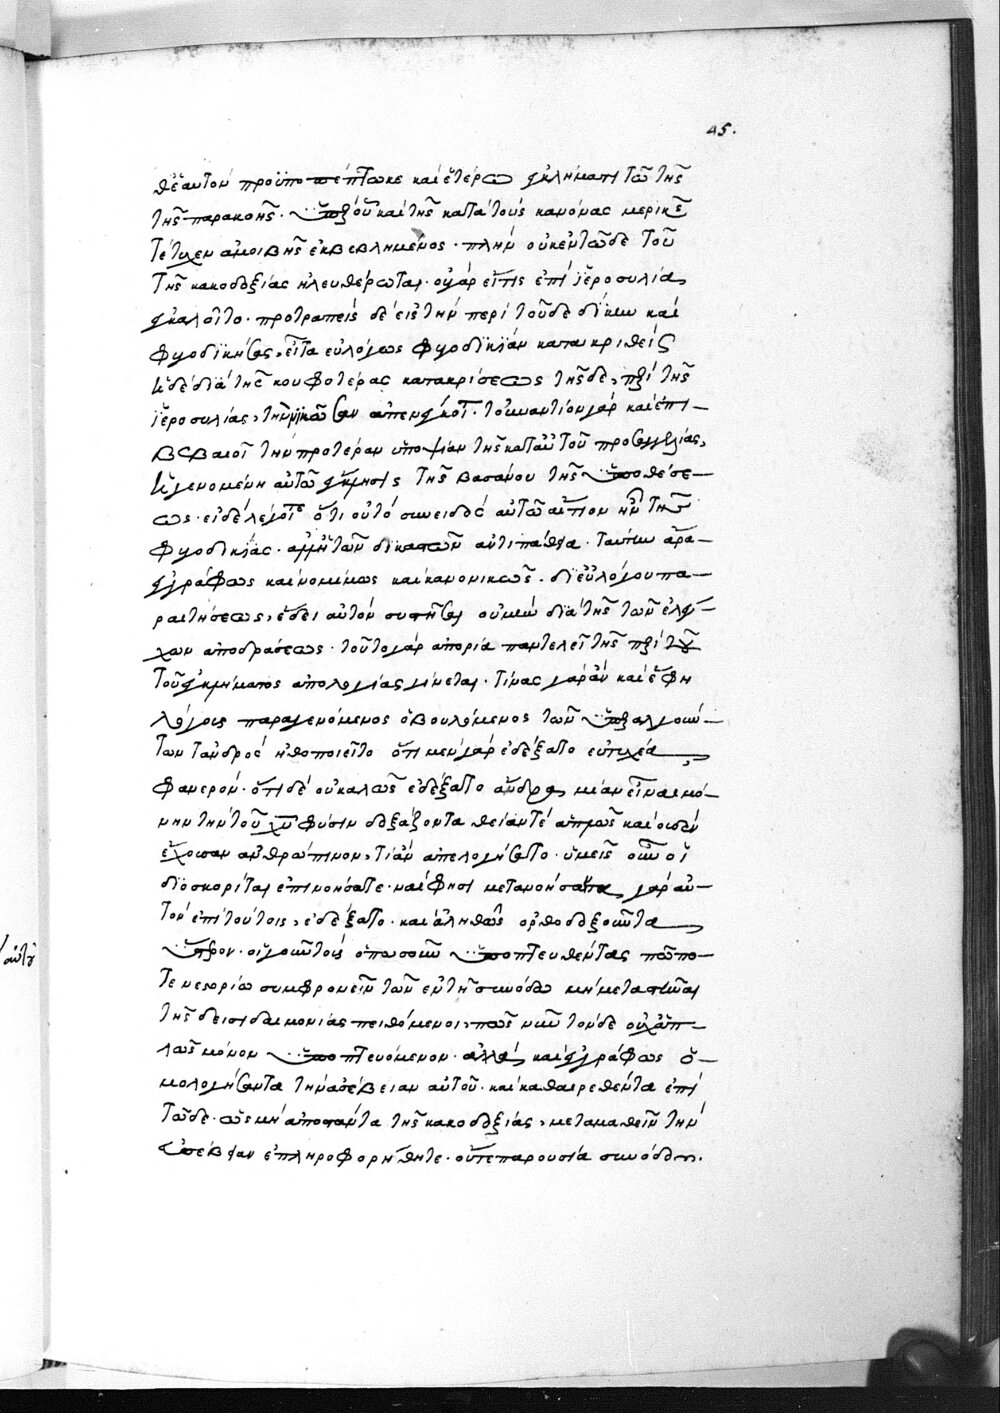 45.
θέαυτὸν προϋπο πέπτωκε καὶ ἑτέρω ἐγκλήματι τῶ τῆς
τῆς παρακοῆς. καὶ τῆς κατὰ τοὺς κανόνας μερικῆς
τέτυχεν ἀμοιβῆς ἐκβεβλημένος. πλὴν οὐκ ἐν τῶδε τοῦ
τῆς κακοδοξίας ἠλευθέρωται. οὐ γὰρ εἴ τις ἐπὶ ἱεροσυλία
ἐγκαλοῖτο. προτραπεὶς δὲ εἰς τὴν περὶ τοῦδε δίκην καὶ
φυγοδικήσας, εἶτα εὐλόγως φυγοδικίαν κατακριθεὶς
ἤδε διὰ τῆς κουφοτέρας κατακρίσεως τῆσδε, περὶ τῆς
ἱεροσυλίας, τὴν ἀπενέγκοι. τοὐναντίον γὰρ καὶ ἐπι-
βεβαιοῖ τὴν προτέραν ὑποψίαν τῆς κατ' αὐτοῦ προσαγγελίας,
ἡ γενομένη αὐτῶ ἔκτισις τῆς βασάνου τῆς ὑποθέσε-
ως. εἰ δὲ λέγοι ὅτι οὐ τὸ συνειδὸς αὐτῶ αἴτιον ἦν τῆς
φυγοδικίας. ἀλλ' ἡ τῶν δικαστῶν ἀντιπάθεια. ταύτην ἄρα
ἐγγράφως καὶ νομίμως καὶ κανονικῶς. δι' εὐλόγου πα-
ραιτήσεως, ἔδει αὐτὸν συστῆσαι οὐ μὴν διὰ τῆς τῶν ἐλέγ-
χων ἀποδράσεως. τοῦτο γὰρ ἀπορία παντελεῖ τῆς περὶ τοῦ
τοῦ ἐγκλήματος ἀπολογίας γίνεται. τίνας γὰρ ἂν καὶ ἔφη
λόγους παραγενόμενος ὁ βουλόμενος τῶν ὑπεραλγούν-
των τἀνδρὸς ἠθοποιεῖτο ὅτι μὲν γὰρ ἐδέξατο εὐτυχέα
φανερόν. ὅτι δὲ οὐ καλῶς ἐδέξατο ἄνδρα μίαν εἶναι μό-
νην τὴν τοῦ χυ φύσιν δοξάζοντα θείαν τὲ ἀτρέπτως καὶ οὐδὲν
ἔχουσαν ἀνθρώπινον, τί ἂν ἀπελογήσατο. ὑμεῖς οὖν οἱ
διοσκορῖται ἐπινοήσατε. ναὶ φησὶ μετανοήσαντα γὰρ αὐ-
τὸν ἐπὶ τούτοις, ἐδέξατο. καὶ ἀληθῶς ὀρθοδοξοῦντα
ὕστερον. οἱ γοῦν τοὺς ὁπωσοῦν ὑποπτευθέντας πώποτε
τε νεστορίω συμφρονεῖν τῶν ἐν τῆ συνόδω μὴ μεταστῆναι
τῆς δεισιδαιμονίας πειθόμενοι, πῶς νῦν τόνδε οὐχ ἁπ-
λῶς μόνον ὑποπτευόμενον. ἀλλὰ καὶ ἐγγράφως ὁ-
μολογήσαντα τὴν ἀσέβειαν αὐτοῦ. καὶ καθαιρεθέντα ἐπὶ
τῶδε. ὡς μὴ ἀποστάντα τῆς κακοδοξίας, μεταμαθεῖν τὴν
εὐσέβειαν ἐπληροφορήθητε. οὔτε παρουσία συνόδων.
αὐτοῦ